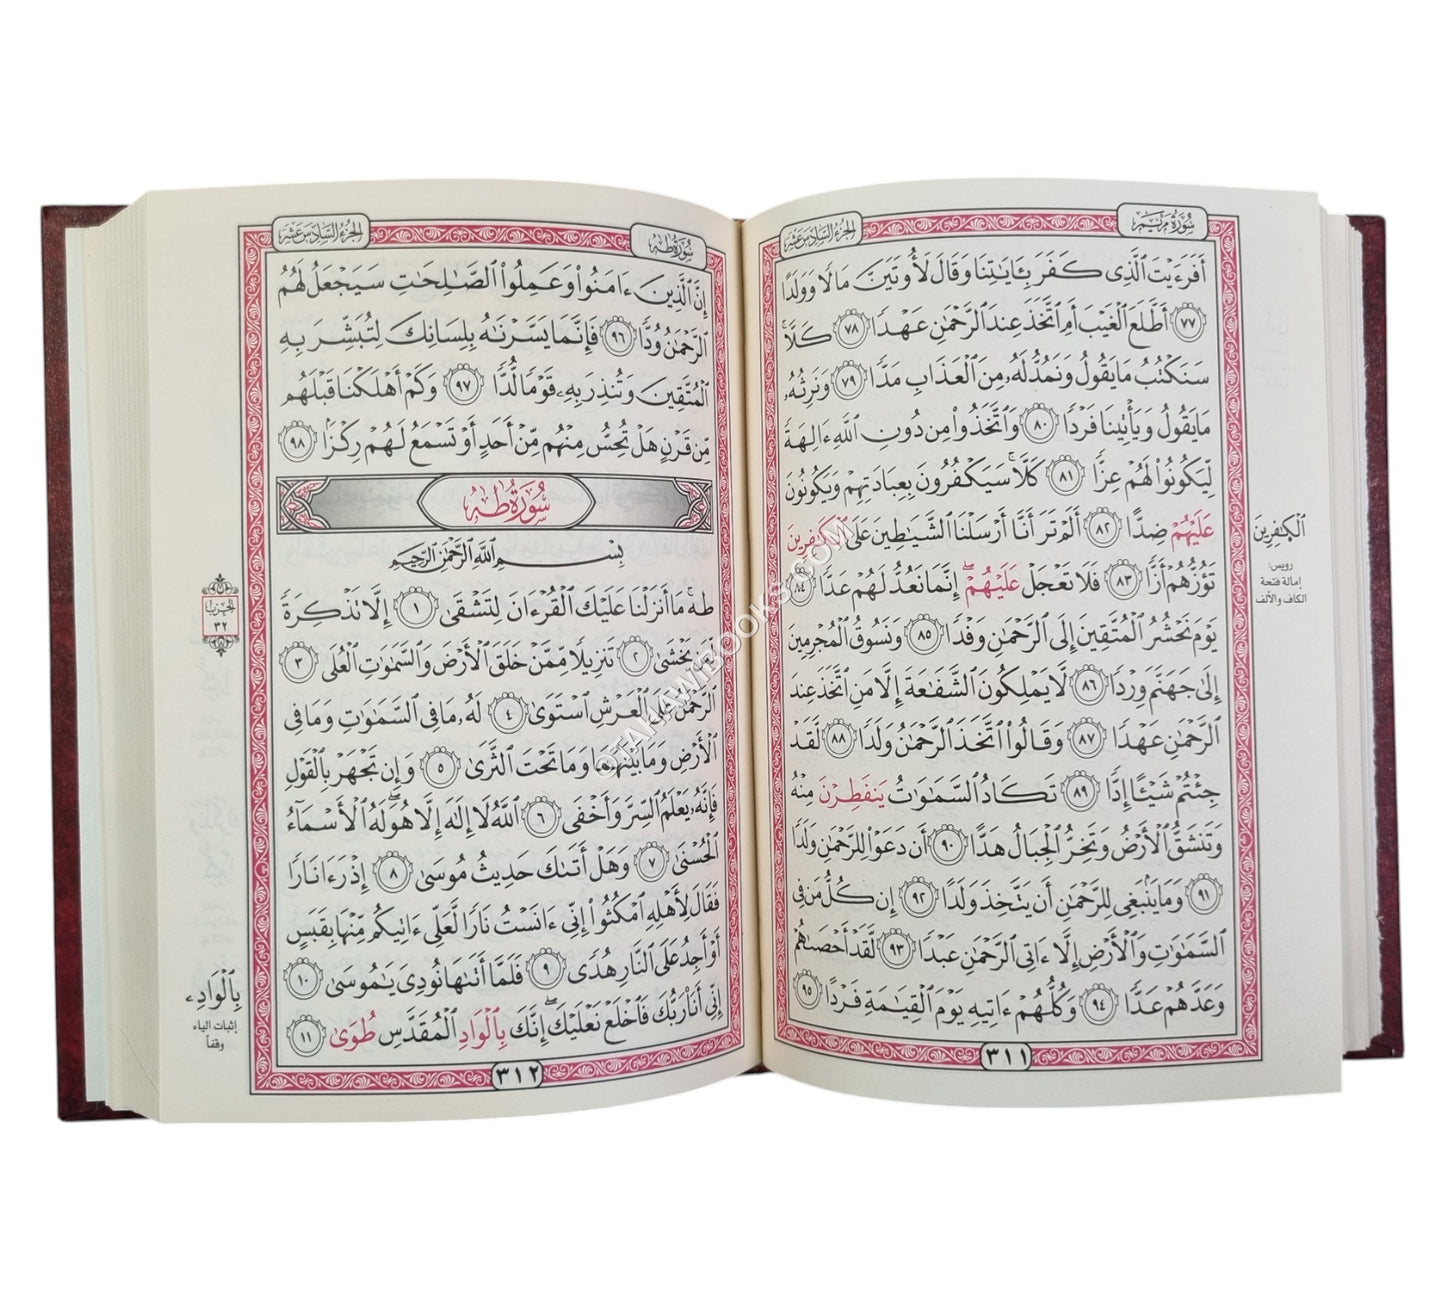 سُورَةُ مَرْيَم
الجُزْءُ السَّادِسَ عَشَرَ
أَفَرَءَيْتَ ٱلَّذِى كَفَرَ بِـَٔايَٰتِنَا وَقَالَ لَأُوتَيَنَّ مَالًا وَوَلَدًا
٧٧ أَطَّلَعَ ٱلْغَيْبَ أَمِ ٱتَّخَذَ عِندَ ٱلرَّحْمَٰنِ عَهْدًا ٧٨ كَلَّا ۚ
سَنَكْتُبُ مَا يَقُولُ وَنَمُدُّ لَهُۥ مِنَ ٱلْعَذَابِ مَدًّا ٧٩ وَنَرِثُهُۥ
مَا يَقُولُ وَيَأْتِينَا فَرْدًا ٨٠ وَٱتَّخَذُوا۟ مِن دُونِ ٱللَّهِ ءَالِهَةً
لِّيَكُونُوا۟ لَهُمْ عِزًّا ٨١ كَلَّا ۚ سَيَكْفُرُونَ بِعِبَادَتِهِمْ وَيَكُونُونَ
عَلَيْهُمْ ضِدًّا ٨٢ أَلَمْ تَرَ أَنَّا أَرْسَلْنَا ٱلشَّيَٰطِينَ عَلَى ٱلْكَٰفِرِينَ
تَؤُزُّهُمْ أَزًّا ٨٣ فَلَا تَعْجَلْ عَلَيْهُمْ ۖ إِنَّمَا نَعُدُّ لَهُمْ عَدًّا ٨٤
يَوْمَ نَحْشُرُ ٱلْمُتَّقِينَ إِلَى ٱلرَّحْمَٰنِ وَفْدًا ٨٥ وَنَسُوقُ ٱلْمُجْرِمِينَ
إِلَىٰ جَهَنَّمَ وِرْدًا ٨٦ لَّا يَمْلِكُونَ ٱلشَّفَٰعَةَ إِلَّا مَنِ ٱتَّخَذَ عِندَ
ٱلرَّحْمَٰنِ عَهْدًا ٨٧ وَقَالُوا۟ ٱتَّخَذَ ٱلرَّحْمَٰنُ وَلَدًا ٨٨ لَّقَدْ
جِئْتُمْ شَيْـًٔا إِدًّا ٨٩ تَكَادُ ٱلسَّمَٰوَٰتُ يَنفَطِرْنَ مِنْهُ
وَتَنشَقُّ ٱلْأَرْضُ وَتَخِرُّ ٱلْجِبَالُ هَدًّا ٩٠ أَن دَعَوْا۟ لِلرَّحْمَٰنِ وَلَدًا
٩١ وَمَا يَنۢبَغِى لِلرَّحْمَٰنِ أَن يَتَّخِذَ وَلَدًا ٩٢ إِن كُلُّ مَن فِى
ٱلسَّمَٰوَٰتِ وَٱلْأَرْضِ إِلَّا ءَاتِى ٱلرَّحْمَٰنِ عَبْدًا ٩٣ لَّقَدْ أَحْصَىٰهُمْ
وَعَدَّهُمْ عَدًّا ٩٤ وَكُلُّهُمْ ءَاتِيهِ يَوْمَ ٱلْقِيَٰمَةِ فَرْدًا ٩٥
٣١١
ٱلْكَٰفِرِينَ
رويس:
إمالة فتحة
الكاف والألف
سُورَةُ طه
الجُزْءُ السَّادِسَ عَشَرَ
إِنَّ ٱلَّذِينَ ءَامَنُوا۟ وَعَمِلُوا۟ ٱلصَّٰلِحَٰتِ سَيَجْعَلُ لَهُمُ
ٱلرَّحْمَٰنُ وُدًّا ٩٦ فَإِنَّمَا يَسَّرْنَٰهُ بِلِسَانِكَ لِتُبَشِّرَ بِهِ
ٱلْمُتَّقِينَ وَتُنذِرَ بِهِۦ قَوْمًا لُّدًّا ٩٧ وَكَمْ أَهْلَكْنَا قَبْلَهُم
مِّن قَرْنٍ هَلْ تُحِسُّ مِنْهُم مِّنْ أَحَدٍ أَوْ تَسْمَعُ لَهُمْ رِكْزًۢا ٩٨
سُورَةُ طه
بِسْمِ ٱللَّهِ ٱلرَّحْمَٰنِ ٱلرَّحِيمِ
طه ۚ مَا أَنزَلْنَا عَلَيْكَ ٱلْقُرْءَانَ لِتَشْقَىٰ ١ إِلَّا تَذْكِرَةً
لِّمَن يَخْشَىٰ ٢ تَنزِيلًا مِّمَّنْ خَلَقَ ٱلْأَرْضَ وَٱلسَّمَٰوَٰتِ ٱلْعُلَى ٣
ٱلرَّحْمَٰنُ عَلَى ٱلْعَرْشِ ٱسْتَوَىٰ ٤ لَهُۥ مَا فِى ٱلسَّمَٰوَٰتِ وَمَا فِى
ٱلْأَرْضِ وَمَا بَيْنَهُمَا وَمَا تَحْتَ ٱلثَّرَىٰ ٥ وَإِن تَجْهَرْ بِٱلْقَوْلِ
فَإِنَّهُۥ يَعْلَمُ ٱلسِّرَّ وَأَخْفَى ٦ ٱللَّهُ لَا إِلَٰهَ إِلَّا هُوَ ۖ لَهُ ٱلْأَسْمَآءُ
ٱلْحُسْنَىٰ ٧ وَهَلْ أَتَىٰكَ حَدِيثُ مُوسَىٰ ٨ إِذْ رَءَا نَارًا
فَقَالَ لِأَهْلِهِ ٱمْكُثُوا۟ إِنِّى ءَانَسْتُ نَارًا لَّعَلِّى ءَاتِيكُم مِّنْهَا بِقَبَسٍ
أَوْ أَجِدُ عَلَى ٱلنَّارِ هُدًى ٩ فَلَمَّا أَتَىٰهَا نُودِىَ يَٰمُوسَىٰ ١٠
إِنِّى أَنَا۠ رَبُّكَ فَٱخْلَعْ نَعْلَيْكَ ۖ إِنَّكَ بِٱلْوَادِ ٱلْمُقَدَّسِ طُوَىٰ ١١
٣١٢
الحِزْبُ
٣٢
بِٱلْوَادِۦ
إثبات الياء
وقفاً
©TAKAWIBOOKS.COM